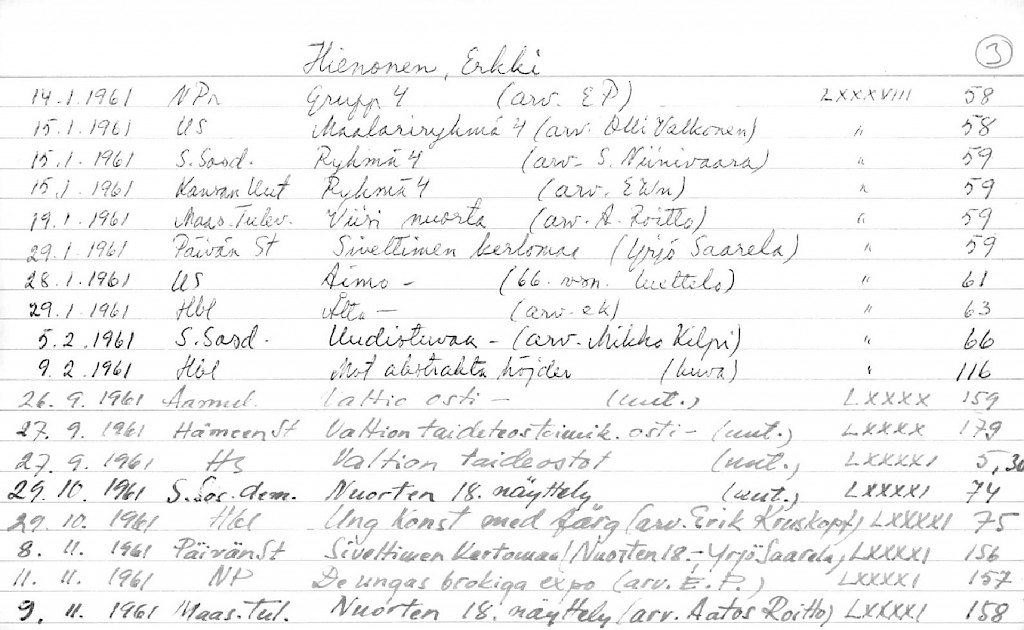 3
Hienonen, Erkki
14.1.1961 NPr Grupp 4 (arv. E P) LXXXVIII 58
15.1.1961 US Maalariryhmä 4 (arv. Olli Valkonen) " 58
15.1.1961 S.Sosd. Ryhmä 4 (arv. S. Niinivaara) " 59
15.1.1961 Kansan Uut Ryhmä 4 (arv. EWn) " 59
19.1.1961 Maas.Tulev. Viisi nuorta (arv. A. Roitto) " 59
29.1.1961 Päivän St Siveltimen kertomaa (Yrjö Saarela) " 59
28.1.1961 US Aimo - (66. luettelo) " 61
29.1.1961 Hbl Åtta - (arv. ek) " 63
5.2.1961 S.Sosd. Uudistuvaa - (arv. Mikko Kilpi) " 66
9.2.1961 Hbl Mot abstrakta höjder (kuva) " 116
26.9.1961 Aamul. Valtio osti - (uut.) LXXXX 159
27.9.1961 HämeenSt Valtion taideteostoimik. osti - (uut.) LXXXX 179
27.9.1961 HS Valtion taideostot (uut.) LXXXXI 5, 30
29.10.1961 S.Sos.dem. Nuorten 18. näyttely (uut.) LXXXXI 74
29.10.1961 Hbl Ung Konst med färg (arv. Erik Kruskopf) LXXXXI 75
8.11.1961 PäivänSt Siveltimen Kertomaa (Nuorten 18. - Yrjö Saarela) LXXXXI 156
11.11.1961 NP De ungas brokiga expo (arv. E.P.) LXXXXI 157
9.11.1961 Maas.Tul. Nuorten 18. näyttely (arv. Aatos Roitto) LXXXXI 158